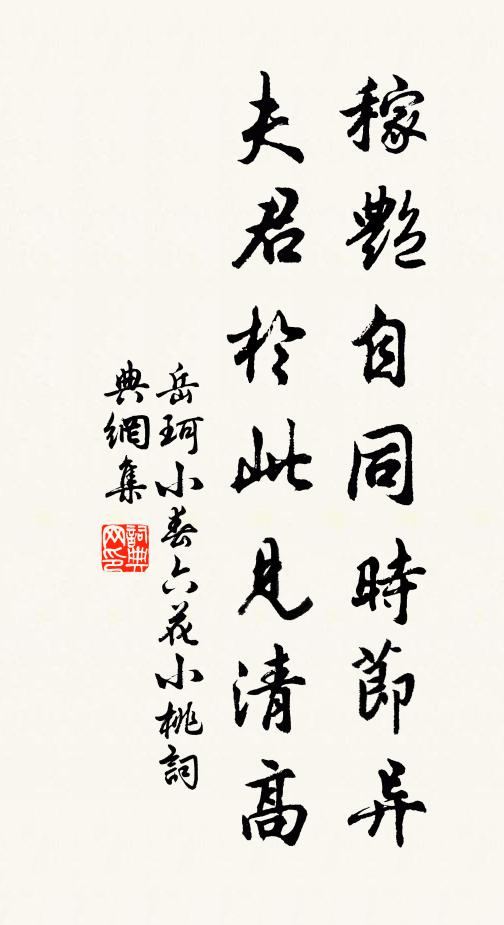 稼艷自同時節异
夫君於此見清高
岳珂小春六花小桃詞
典網集
詞典網印